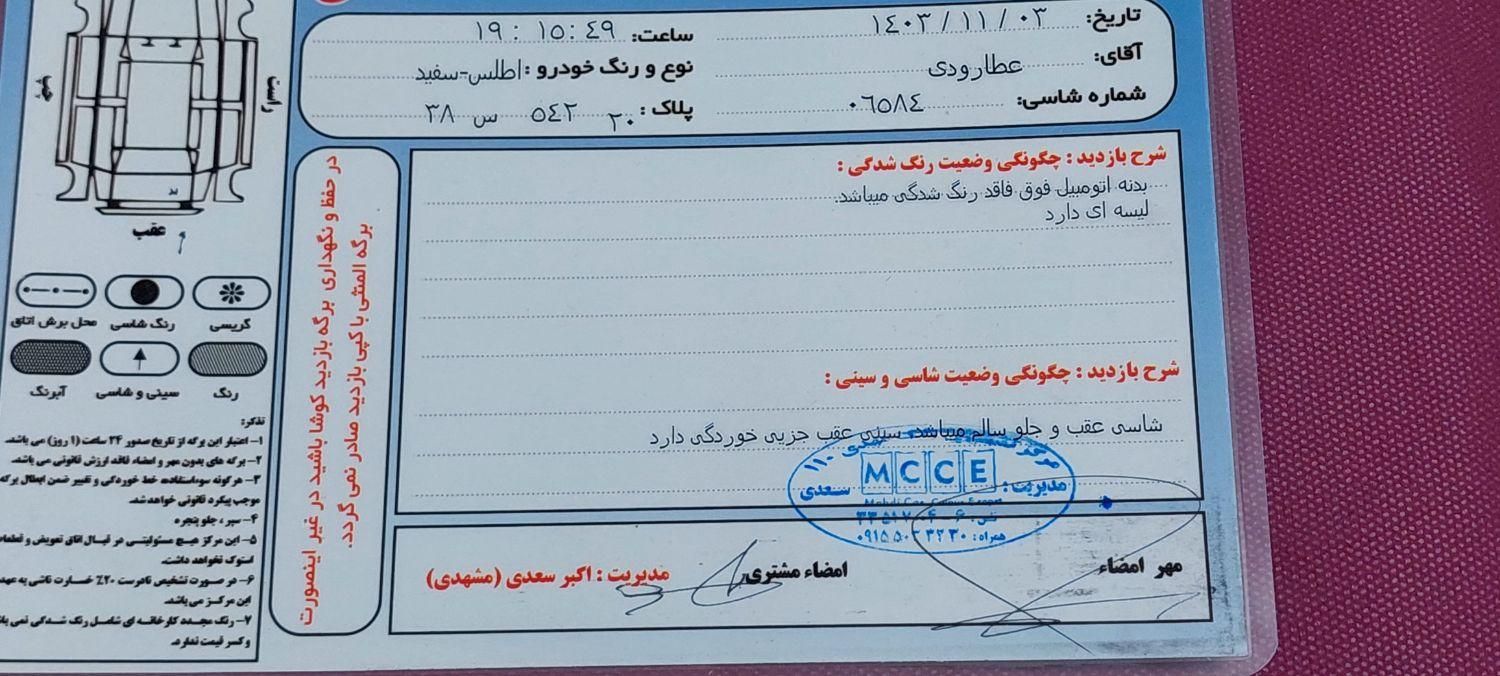 تاریخ: ۱٤۰۳ / ۱۱ / ۰۳
ساعت: ۱۹ : ۱٥ : ٤۹
آقای: عطارودی
نوع و رنگ خودرو : اطلس-سفید
شماره شاسی: ۰٦٥۸٤
پلاک : ۲۰ ٥٤۲ س ۳۸
شرح بازدید : چگونگی وضعیت رنگ شدگی :
بدنه اتومبیل فوق فاقد رنگ شدگی میباشد.
لیسه ای دارد
شرح بازدید : چگونگی وضعیت شاسی و سینی :
شاسی عقب و جلو سالم میباشد. سینی عقب جزیی خوردگی دارد
۱۱۰
MCCE
مدیریت: سعدی
همراه: ۰۹۱۵۵۰۲۳۲۳۰
مهر امضاء
امضاء مشتری
مدیریت : اکبر سعدی (مشهدی)
در حفظ و نگهداری برگه بازدید کوشا باشید در غیر اینصورت
برگه المثنی یا کپی بازدید صادر نمی گردد.
راست
چپ
عقب
گریسی
رنگ شاسی
محل برش اتاق
رنگ
سینی و شاسی
آبرنگ
تذکر:
۱- اعتبار این برگه از تاریخ صدور ۲۴ ساعت (۱ روز) می باشد.
۲- برگه های بدون مهر و امضاء فاقد ارزش قانونی می باشد.
۳- هرگونه سوءاستفاده، خط خوردگی و تغییر ضمن ابطال برگه
موجب پیگرد قانونی خواهد شد.
۴- سپر ، جلو پنجره
۵- این مرکز هیچ مسئولیتی در قبال اتاق تعویض و قطعات
استوک نخواهد داشت.
۶- در صورت تشخیص نادرست ۲۰٪ خسارت ناشی به عهده
این مرکز می باشد.
۷- رنگ مجدد کارخانه ای شامل رنگ شدگی نمی باشد
و کسر قیمت ندارد.